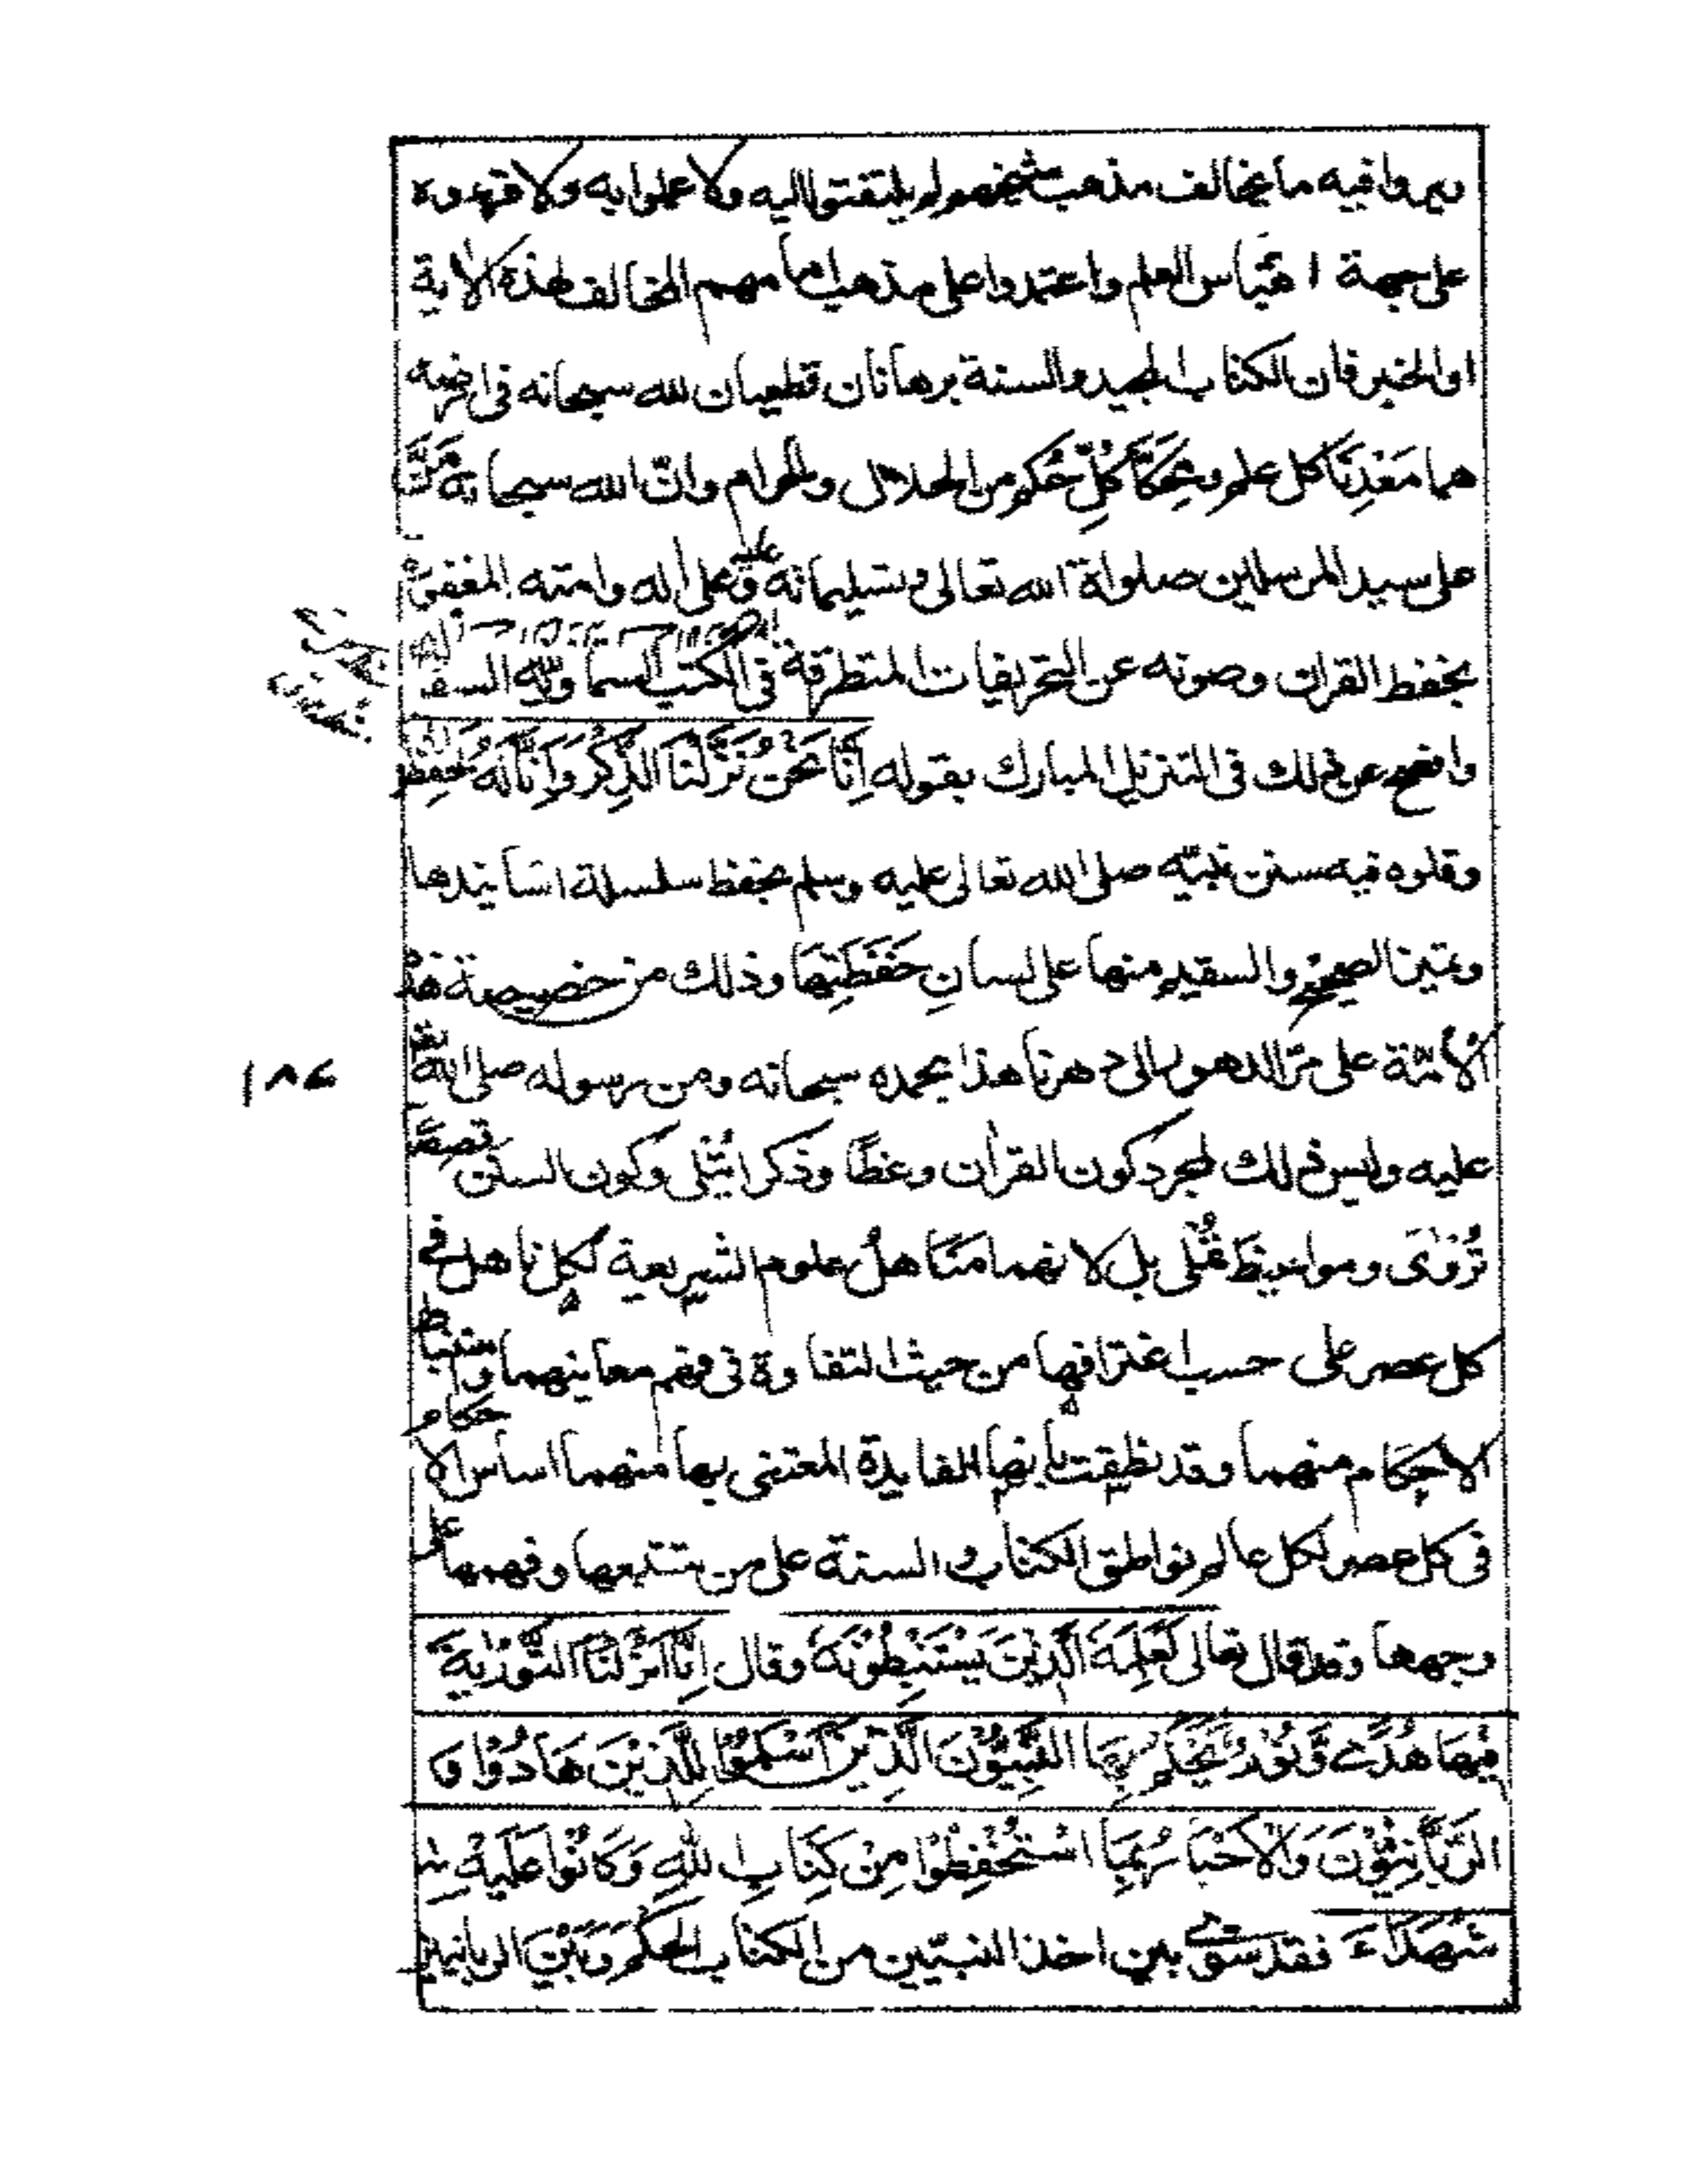 يروا فيه ما يخالف مذهب شيخهم لم يلتفتوا اليه ولا عملوا به ولا قرءوه
على جهة اقتباس العلم واعتمدوا على مذهب امامهم المخالف لهذه الاية
او الخبر فان الكتاب المجيد والسنة برهانان قطعيان لله سبحانه في ارضه
هما مَعْدِنَا كل علم و مِحَكَّا كُلِّ حُكم من الحلال والحرام وانّ الله سبحانه مَنَّ
على سيد المرسلين صلواة الله تعالى وتسليماته عليه وعلى اله وامته
بحفظ القران وصونه عن التحريفات المتطرقة في الكتب السماوية
وافصح عن ذلك في التنزيل المبارك بقوله اِنَّا نَحْنُ نَزَّلْنَا الذِّكْرَ وَاِنَّا لَهُ لَحٰفِظُوْنَ
وتلوه فيه سنن نبيّه صلى الله تعالى عليه وسلم بحفظ سلسلة اسانيدها
وتميز الصحيح والسقيم منها على لسانِ حَفَظَتِهَا وذلك من خصيصة هذه
الاُمّة على مرّ الدهور الى دهرنا هذا بحمده سبحانه ومن رسوله صلى الله تعالى
١٨٤
عليه وليس ذلك لمجرد كون القراٰن وعظًا وذكرا يُتْلى وكون السنن قصصًا
تُرْوٰى ومواعيظ تُمْلٰى بل لانهما مَنَاهلُ علوم الشريعة لكل ناهل في
كل عصر على حسب اغترافها من حيث التفاوة في فهم معانيهما واستنباط
الاحكام منهما وقد نطقت بانها الفايدة المعتنى بها منهما اساس الاحكام
في كل عصر لكل عالم نواطق الكتاب والسنة على من يتتبعها وفهمها على
وجهها وقد قال تعالى لَعَلِمَهُ الَّذِيْنَ يَسْتَنْبِطُوْنَهُ وقال اِنَّا اَنْزَلْنَا التَّوْرٰيةَ
فِيْهَا هُدًى وَّنُوْرٌ يَحْكُمُ بِهَا النَّبِيُّوْنَ الَّذِيْنَ اَسْلَمُوْا لِلَّذِيْنَ هَادُوْا وَ
الرَّبَّانِيُّوْنَ وَالْاَحْبَارُ بِمَا اسْتُحْفِظُوْا مِنْ كِتَابِ اللهِ وَكَانُوْا عَلَيْهِ
شُهَدَاءَ فقد سوّى بين اخذ النبيّين من الكتاب الحكم وَبَيْنَ الربانيين